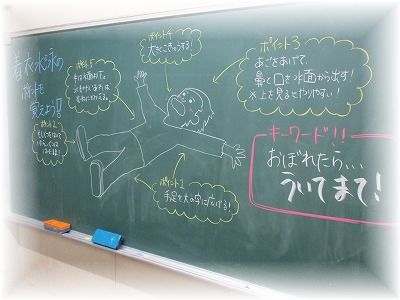 着衣水泳の
ポイントを
覚えよう!!
ポイント1
手足を大の字に広げる!
ポイント2
ポイント3
あごをあげて、
鼻と口を水面から出す!
水上を見るとやりやすい!
ポイント4
大きくこきゅうする!
ポイント5
キーワード!!
おぼれたら...
ういてまて!